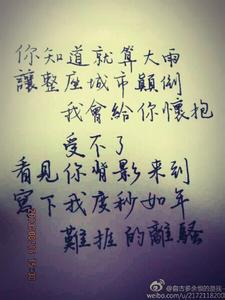 你知道就算大雨
讓整座城市顛倒
我會給你懷抱
受不了
看見你背影来到
寫下我度秒如年
難捱的離騷
@自古多余恨的是我
weibo.com/u/2172118200